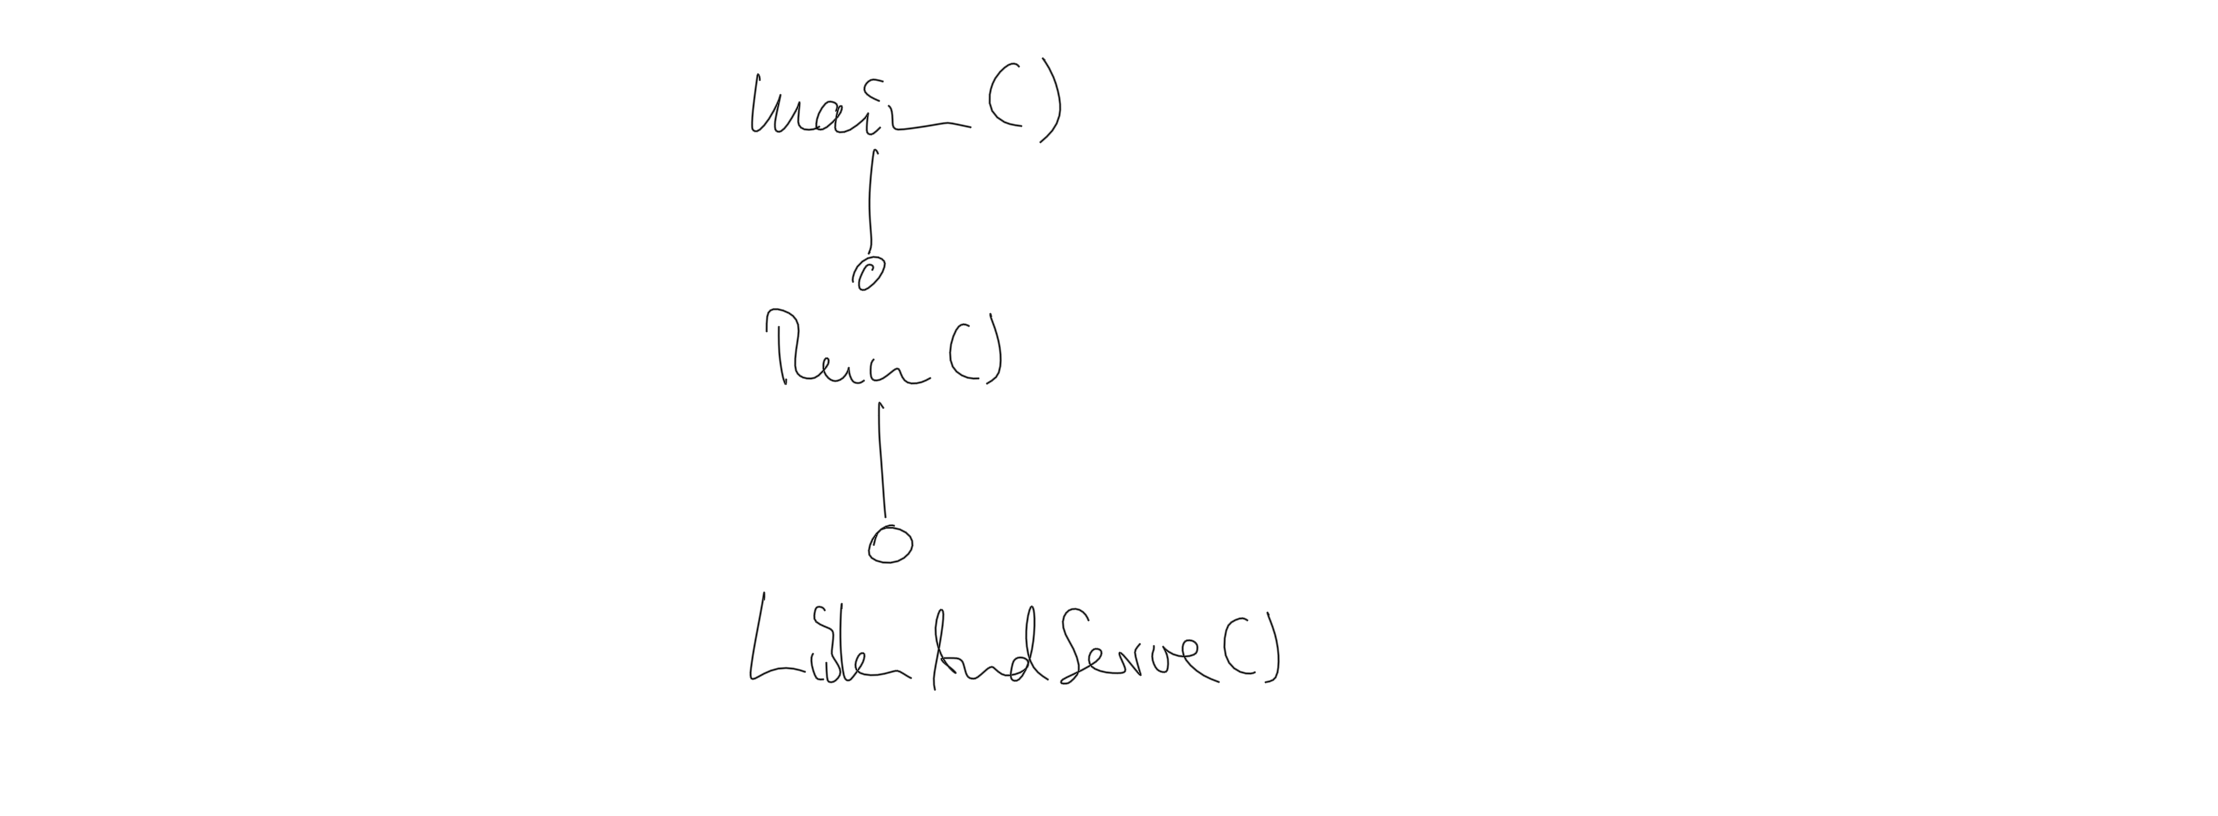 main()
Run()
ListenAndServe()